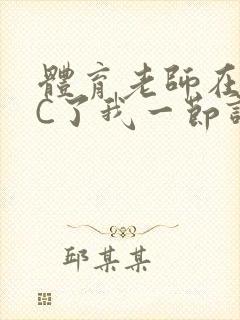 體育老師在
C了我一節
邱某某